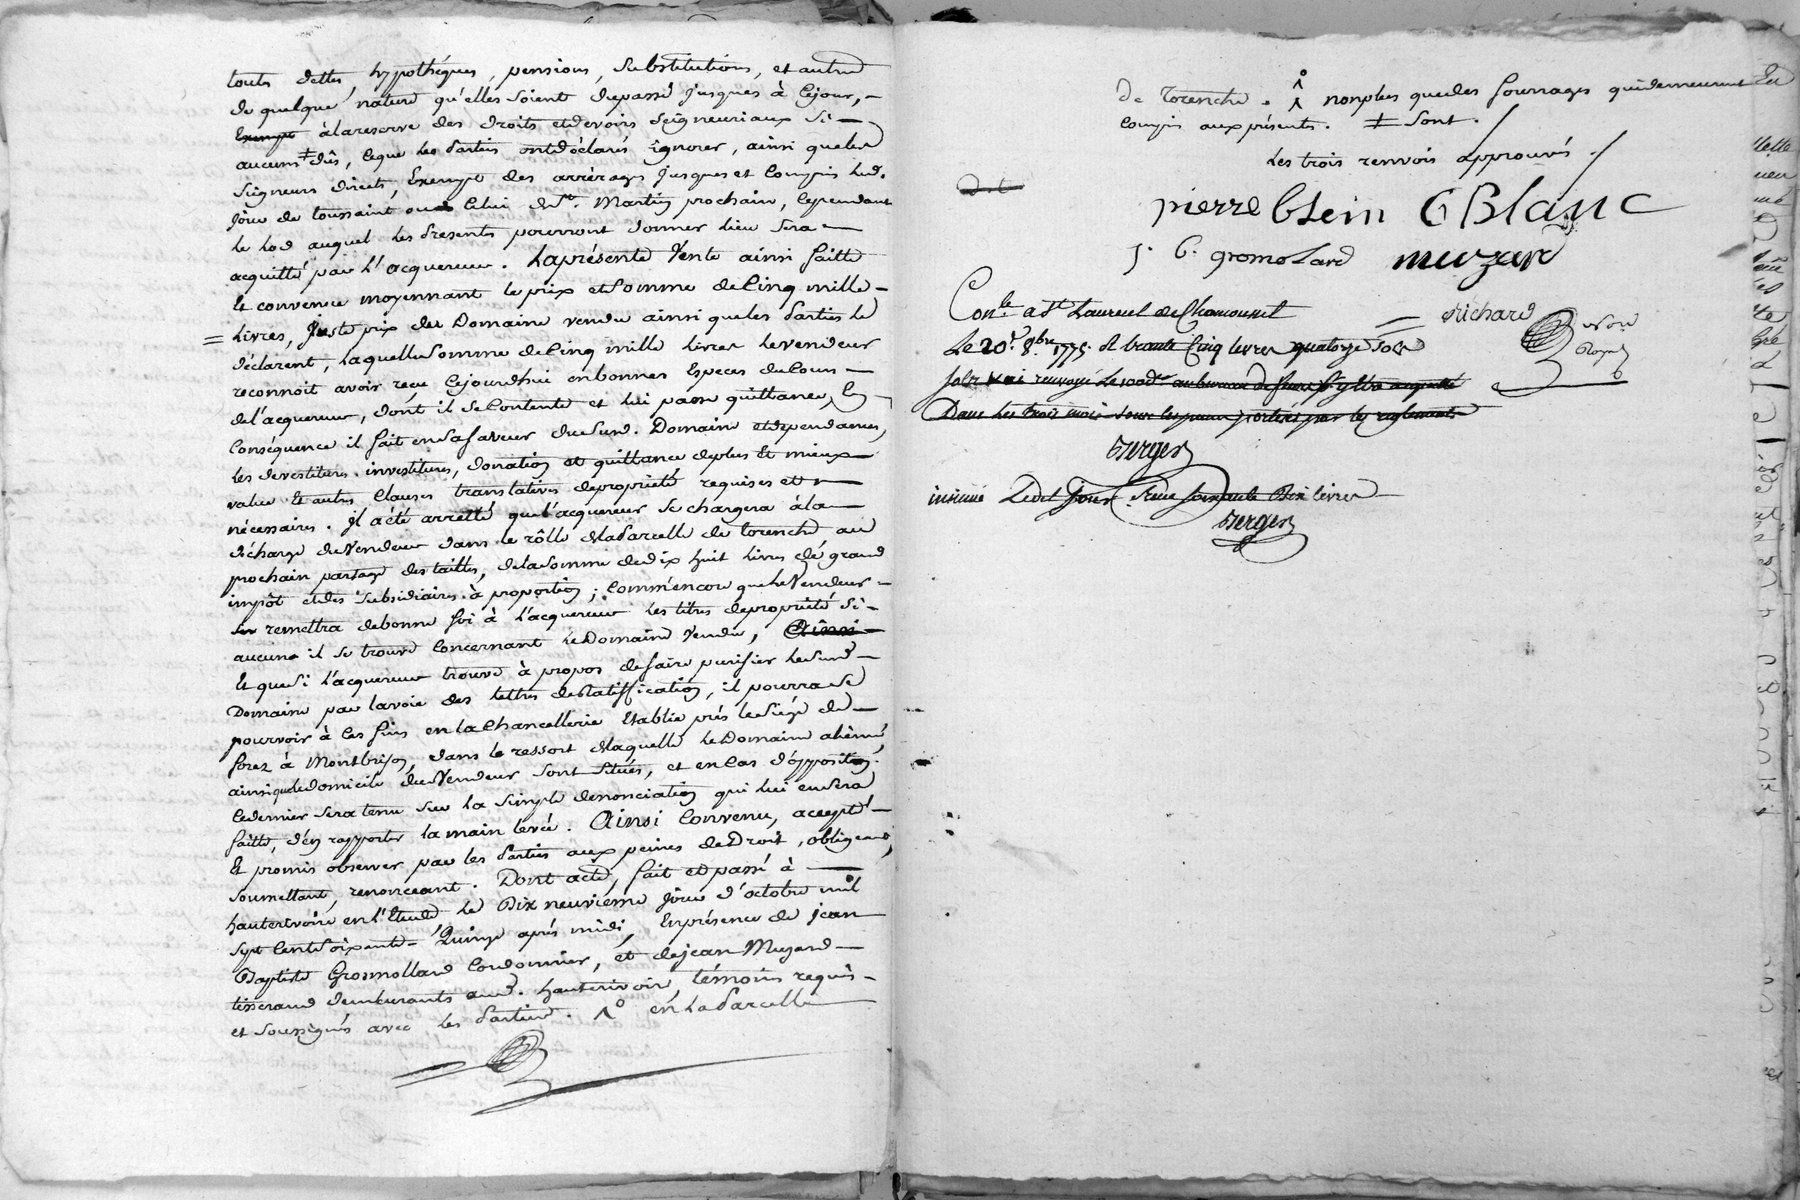 touts dettes, hypothéques, pensions, substitutions, et autres
de quelque nature qu'elles soient du passé jusques à cejour,
Exempt à la reserve des droits et devoirs seigneuriaux si
aucuns ‡ dûs, ceque les parties ont déclarés ignorer, ainsi queles
seigneurs directs, Exempt des arrérages jusques et compris lud.
jour de toussaint ou celui de St. Martin prochain, cependant
le lod auquel les presentes pourront donner lieu sera
acquitté par l'acquereur. La présente Vente ainsi faitte
et convenue moyennant le prix et somme de Cinq mille
Livres, juste prix du Domaine vendu ainsi queles parties le
déclarent, laquelle somme de Cinq mille livres levendeur
reconnoit avoir reçu cejourdhui en bonnes Especes de cours
de l'acquereur, dont il se contente et lui passe quittance, En
Conséquence il fait en sa faveur du surd. Domaine et dependances,
les devestitures, investitures, donation et quittance de plus et mieux
value et autres Clauses translatives de proprieté requises et
nécessaires. Il a été arretté que l'acquereur se chargera à la
décharge du Vendeur dans le rôlle de la Parcelle de torenche au
prochain partage des tailles, de la somme de dix huit livres de grand
impôt et des subsidiaires à proportion; Comm'encore que le Vendeur
remettra de bonne foi à l'acquereur les titres de proprieté si
aucuns il se trouve concernant le Domaine Vendu, Ainsi
Et que si l'acquereur trouve à propos de faire purifier le surd
Domaine par la voie des lettres de Ratiffication, il pourra se
pourvoir à ces fins en la Chancellerie Etablie prés le siége de
forez à Montbrison, dans le ressort de laquelle le Domaine aliené,
ainsi que le domicile du Vendeur sont situés, et en Cas d'opposition
ce dernier sera tenu sur la simple denonciation qui lui en sera
faitte, d'en rapporter la main levée. Ainsi Convenu, accepté
Et promis observer par les Parties aux peines de Droit, obligeant,
soumettant, renonceant. Dont acte, fait et passé à
hauterivoire en l'Etude le Dix neuvieme jour d'octobre mil
sept Cent soixante-Quinze aprés midi, En présence de jean
Baptiste Grosmollard Cordonnier, et de jean Muzard
tisserand demeurants aud. hauterivoire, témoins requis
et soussignés avec les Parties. 1° en la Parcelle
de torenche. 1° non plus que des fourrages qui demeurent
Compris aux présents. ‡ sont.
Les trois renvois approuvés
pierre blein C Blanc
J. B. gromolard muzard
Richard
Conlé. a St Laurent de Chamousset
Le 20e. 8bre 1775. R trente Cinq livres quatorze sols
Dans les trois mois sous les peines portées par les reglements
Berger
insinué Ledit jour. Reçu soixante Dix livres
Berger